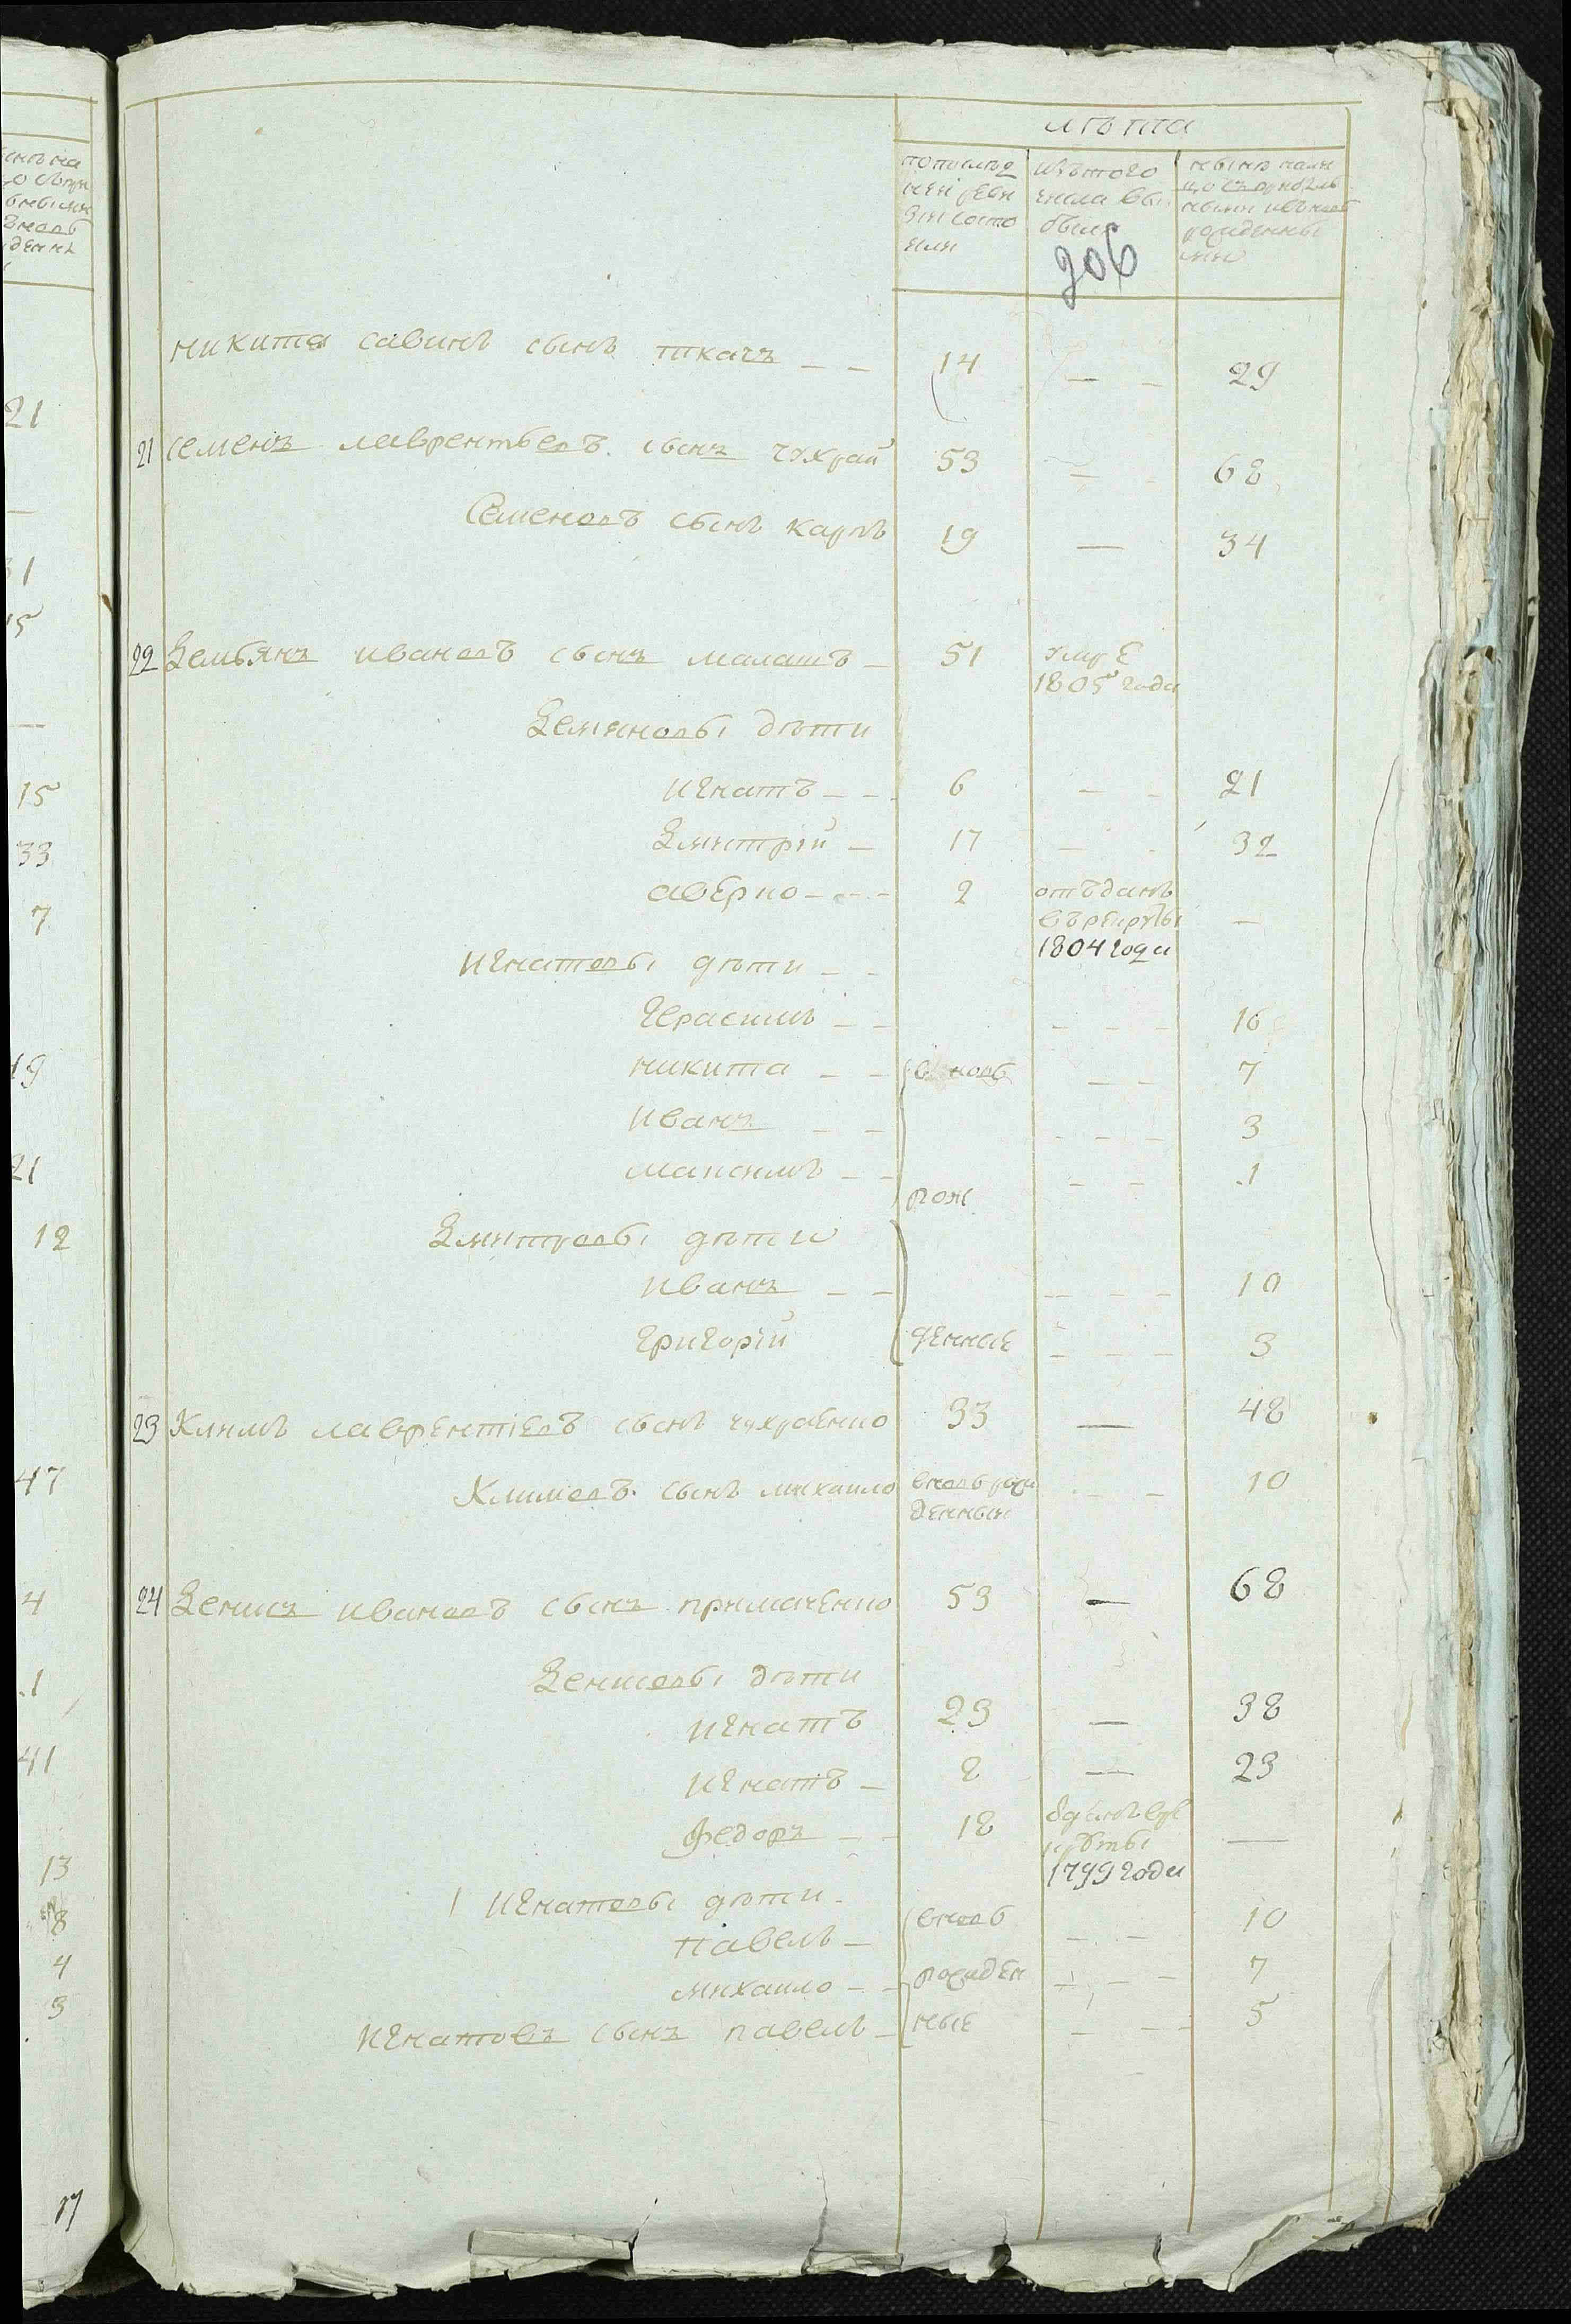 21
15
33
7
19
21
12
47
4
1
41
13
8
4
3
лѣта
попослѣд
ней реви
зіи состо
яли
изътого
числа вы
было
206
нынѣ нали
цо съ прибыл
ными ивъновь
рожденны
ми
никита савинъ сынъ ткачъ 14 — 29
21 семенъ лаврентьевъ сынъ чухрай 53 — 68
Семеновъ сынъ карпъ 19 — 34
22 Демьянъ ивановъ сынъ малашъ 51 умре
1805 года
Демяновы дѣти
игнатъ 6 — 21
Дмитрій 17 — 32
аверко 2 отъданъ
въ рекруты —
1804 года
игнатовы дѣти
герасимъ — 16
никита в новь — 7
иванъ — 3
максимъ — 1
рож
Дмитровы дѣти
иванъ — 10
григорій денные — 3
23 Климъ лаврентіевъ сынъ чухраенко 33 — 48
Климовъ сынъ михаило вновь рож — 10
денный
24 Денисъ ивановъ сынъ примаченко 53 — 68
Денисовы дѣти
игнатъ 23 — 38
игнатъ 8 — 23
федоръ 18 одданъ вре
круты —
1799 года
игнатовы дѣти
павелъ вновь — 10
михаило рожден — 7
игнатовъ сынъ павелъ ные — 5